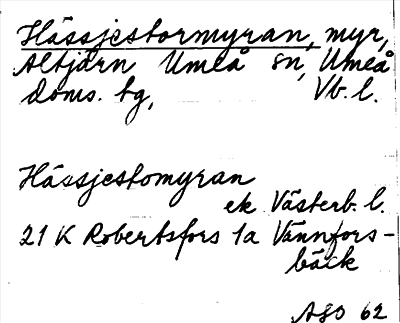 Hässjestormyran, myr,
Altjärn Umeå sn, Umeå
doms. tg, Vb. l.
Hässjestomyran
ek Västerb. l.
21 K Robertsfors 1a Vännfors-
bäck
ASO 62